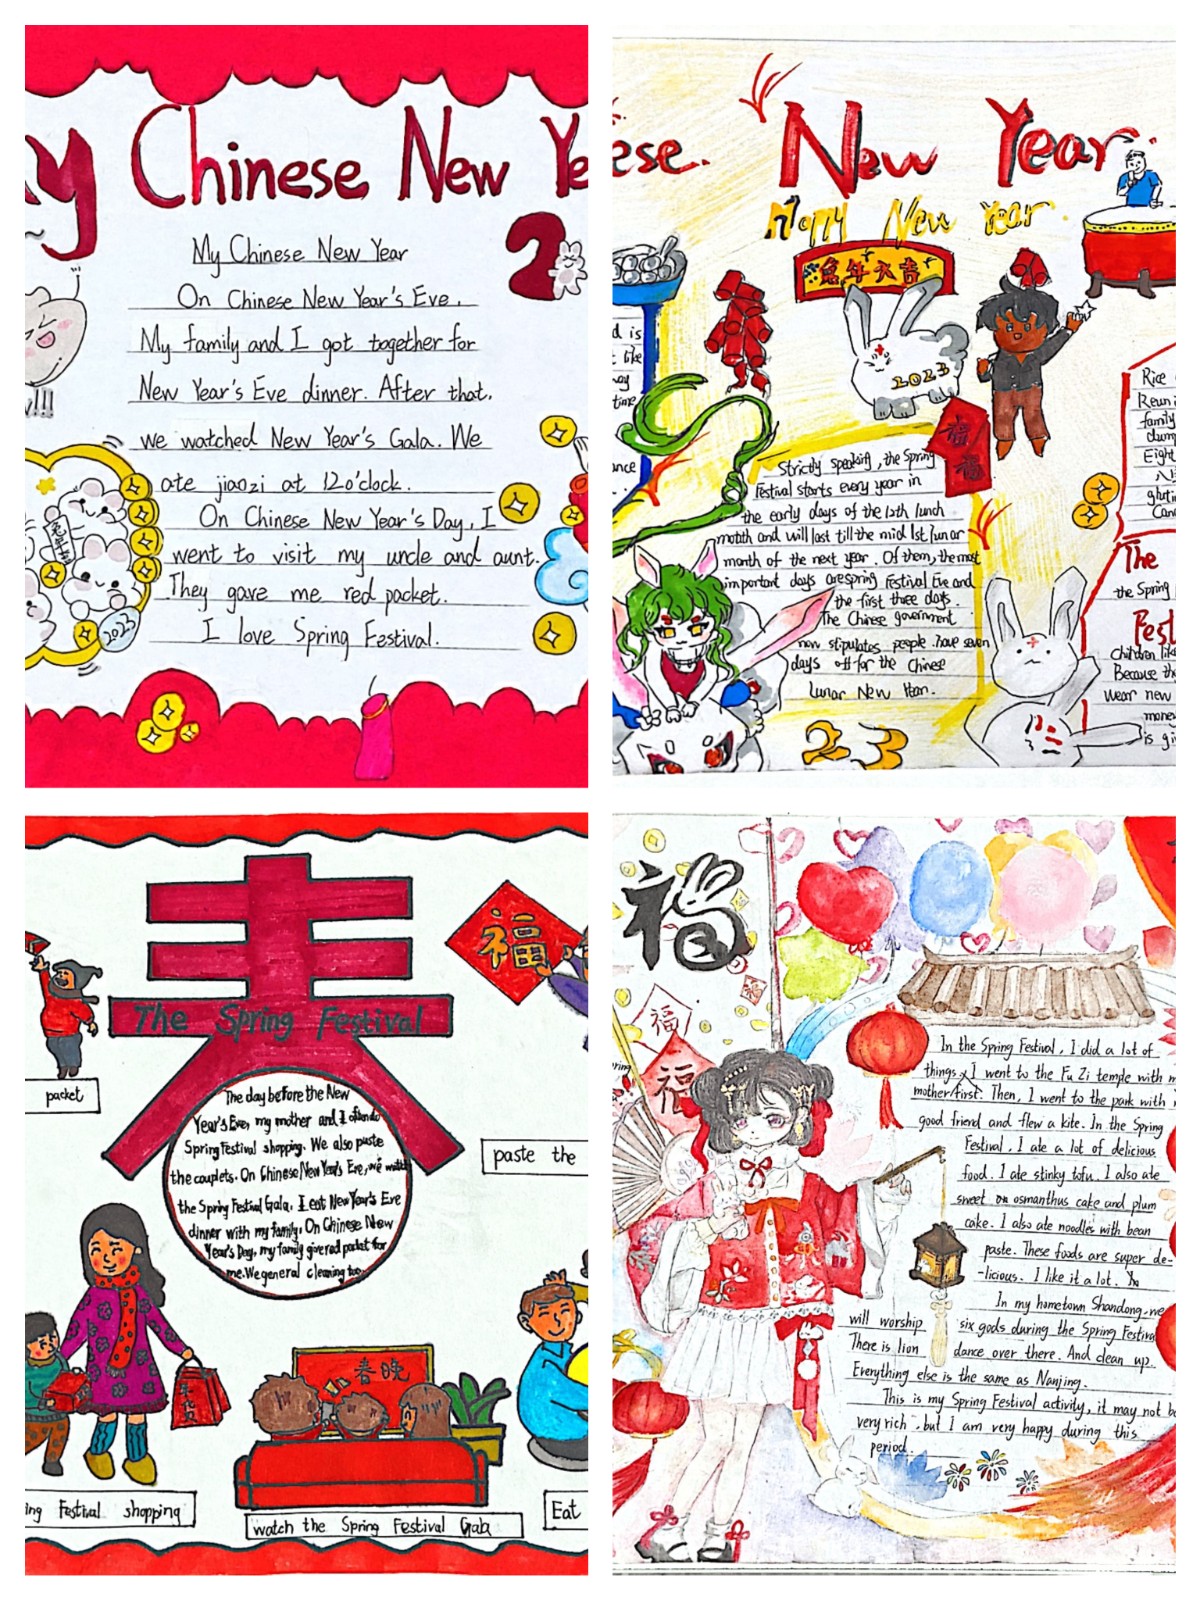 y Chinese New Ye
2
My Chinese New Year
On Chinese New Year's Eve.
My family and I got together for
New Year's Eve dinner. After that,
we watched New Year's Gala. We
ate jiaozi at 12o'clock.
On Chinese New Year's Day, I
went to visit my uncle and aunt.
They gave me red packet.
I love Spring Festival.
2023
ese. New Year.
Happy New Year
兔年大吉
2023
福
福
d is
like
time
Strictly speaking, the Spring
Festival starts every year in
the early days of the 12th lunch
motnth and will last till the mid 1st lunar
month of the next year. Of them, the most
important days arespring Festival Eve and
the first three days.
The Chinese government
now stipulates people have seven
days off for the Chinese
Lunar New
23
Rice
Reuni
family
dump
Eight
八
gluti
Can
The
the Spring
Fest
children lik
Because th
wear new
money
is gi
春
The Spring Festival
福
packet
The day before the New
Year's Eve, my mother and I often do
Spring Festival shopping. We also paste
the couplets. On Chinese New Year's Eve, we watch
the Spring Festival Gala. I eat New Year's Eve
dinner with my family. On Chinese New
Year's Day, my family give red packet for
me. We general cleaning too.
paste the
春晚
ing Festival shopping
watch the Spring Festival Gala
Eat
福
福
福
In the Spring Festival, I did a lot of
things. I went to the Fu Zi temple with m
mother first. Then, I went to the park with
good friend and flew a kite. In the Spring
Festival, I ate a lot of delicious
food. I ate stinky tofu. I also ate
sweet osmanthus cake and plum
cake. I also ate noodles with bean
paste. These foods are super de-
-licious. I like it a lot.
In my hometown Shandong, we
will worship six gods during the Spring Festiva
There is lion dance over there. And clean up.
Everything else is the same as Nanjing.
This is my Spring Festival activity, it may not be
very rich, but I am very happy during this
period.